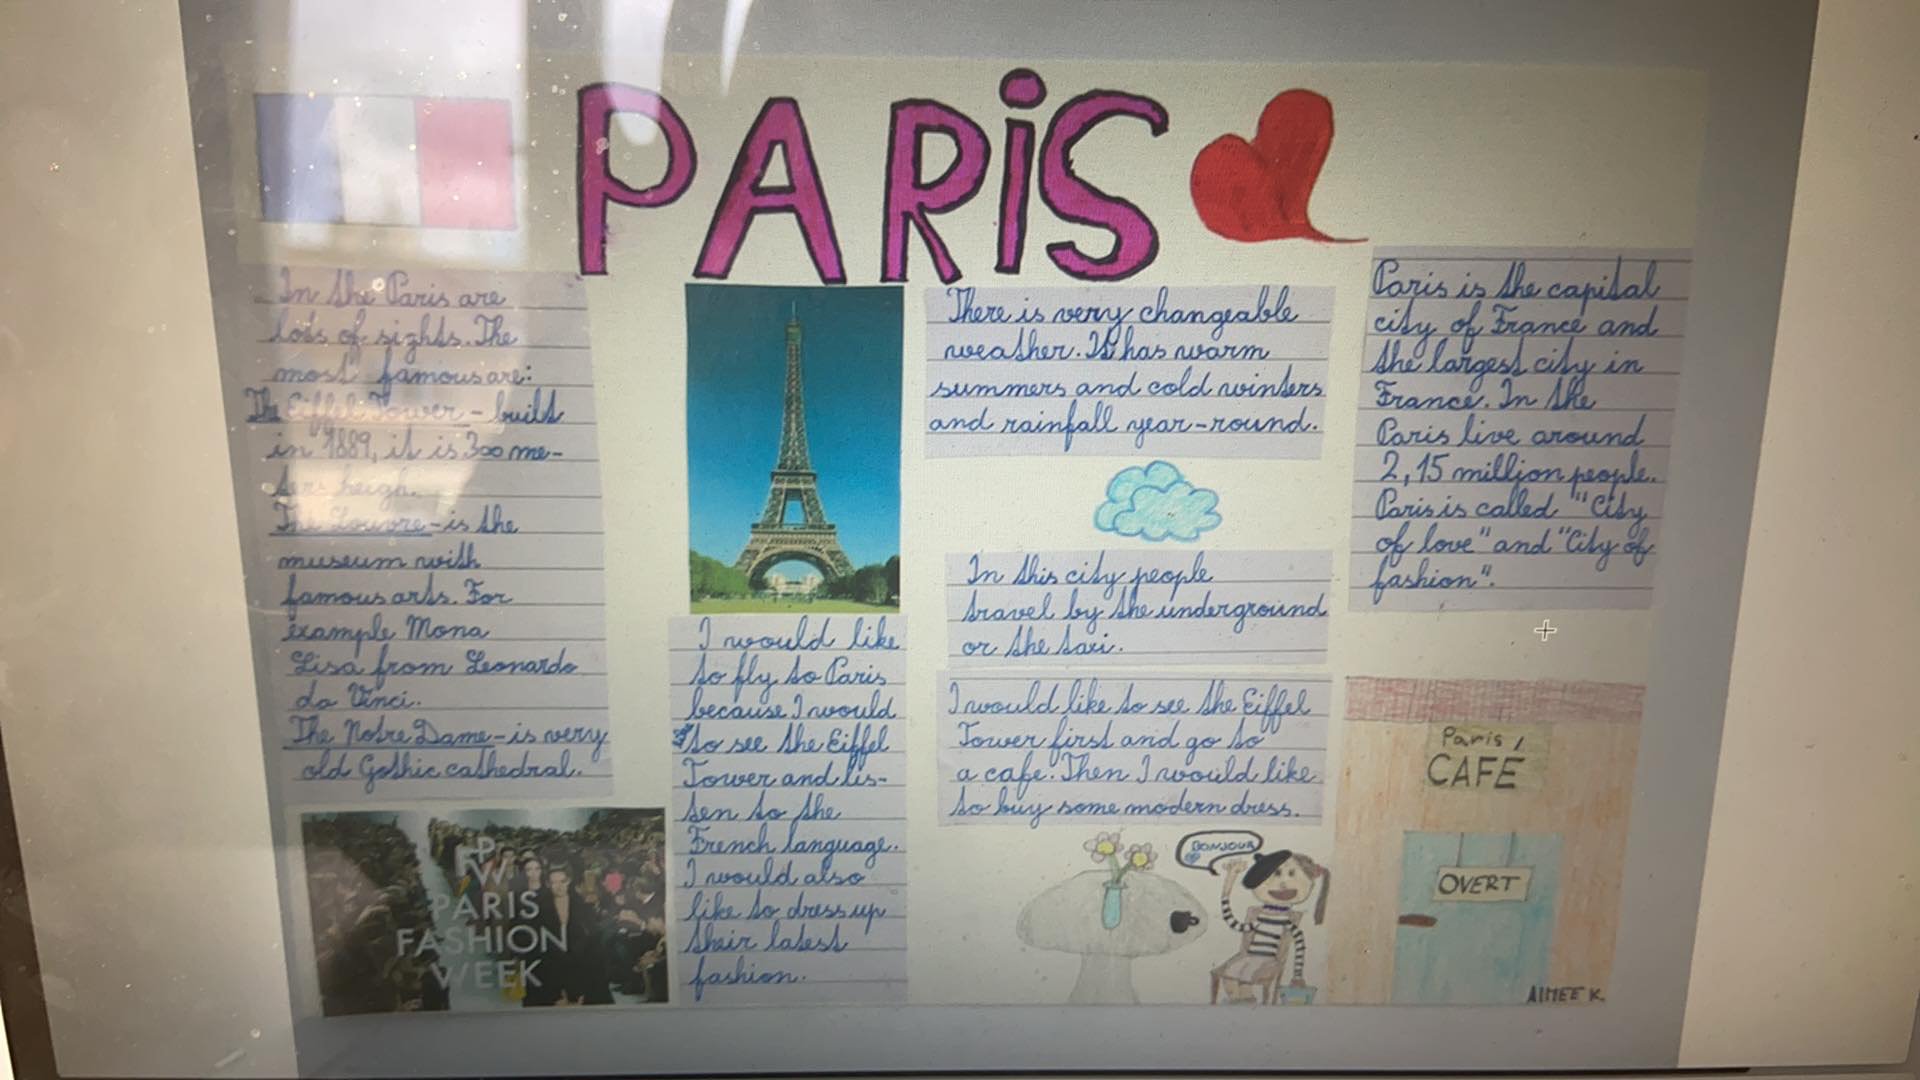 PARiS
In the Paris are
lots of sights. The
most famous are:
The Eiffel Tower - built
in 1889, it is 300 me-
ters heigh.
The Louvre - is the
museum with
famous arts. For
example Mona
Lisa from Leonardo
da Vinci.
The Notre Dame - is very
old Gothic cathedral.
PFW
PARIS
FASHION
WEEK
I would like
to fly to Paris
because I would
to see the Eiffel
Tower and lis-
ten to the
French language.
I would also
like to dress up
their latest
fashion.
There is very changeable
weather. It has warm
summers and cold winters
and rainfall year-round.
In this city people
travel by the underground
or the taxi.
I would like to see the Eiffel
Tower first and go to
a cafe. Then I would like
to buy some modern dress.
BONJOUR
Paris is the capital
city of France and
the largest city in
France. In the
Paris live around
2,15 million people.
Paris is called "City
of love" and "City of
fashion".
Paris,
CAFE
OVERT
AIMEE K.